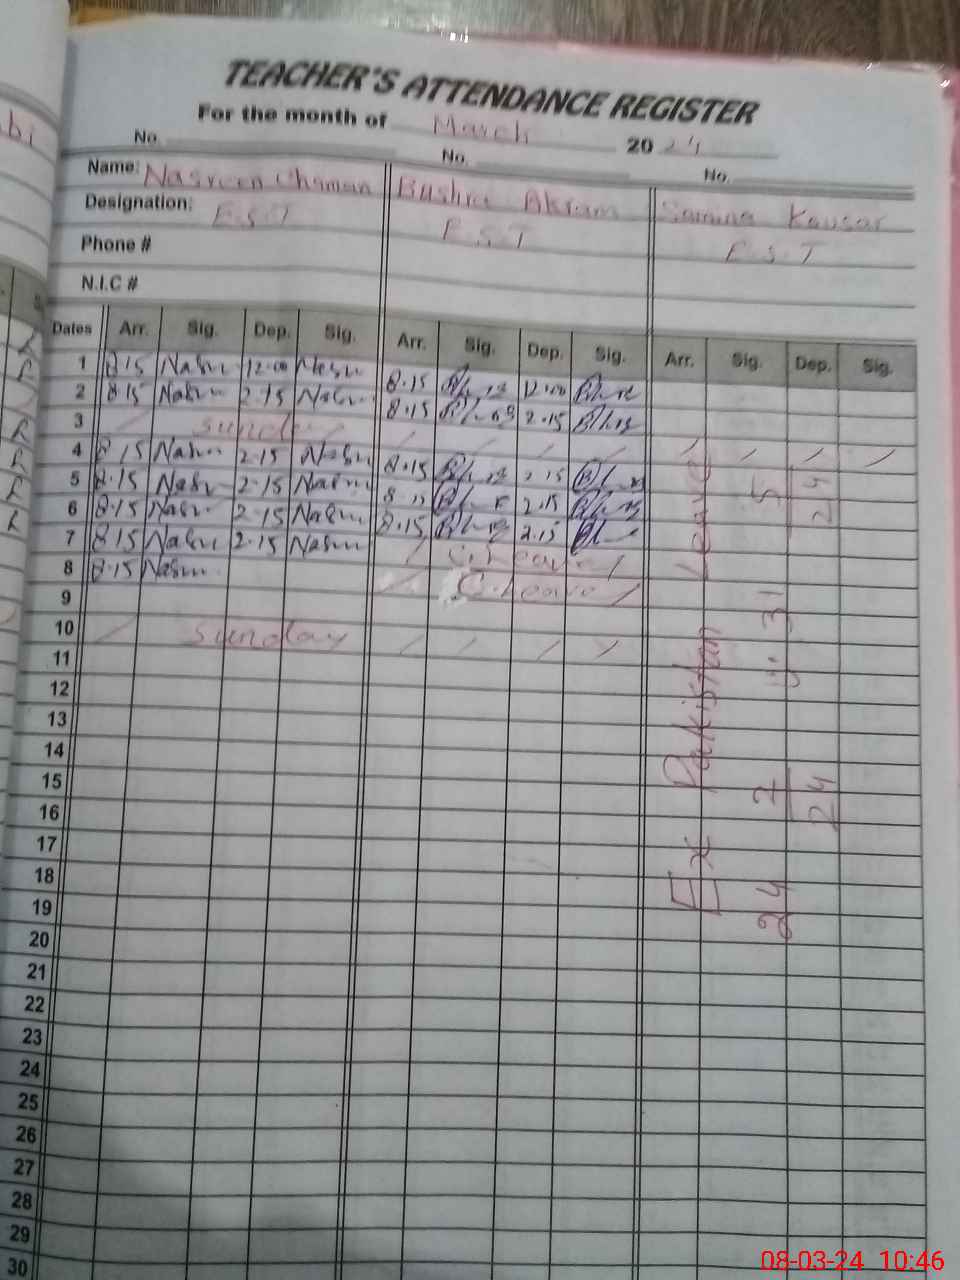 TEACHER'S ATTENDANCE REGISTER
For the month of March 2024
No. No. No.
Name: Nasreen Chaman Bushra Akram Samina Kausar
Designation: E.S.T E.S.T E.S.T
Phone #
N.I.C #
Dates Arr. Sig. Dep. Sig. Arr. Sig. Dep. Sig. Arr. Sig. Dep. Sig.
1 8.15 Nasrn 12.00 Nasrn 8.15 12.00
2 8.15 Nasrn 2.15 Nasrn 8.15 2.15
3 / sunday / / / / / / / /
4 8.15 Nasrn 2.15 Nasrn 8.15 2.15
5 8.15 Nasrn 2.15 Nasrn 8.15 2.15
6 8.15 Nasrn 2.15 Nasrn 8.15 2.15
7 8.15 Nasrn 2.15 Nasrn / C.Leave /
8 8.15 Nasrn / C.Leave /
9
10 / sunday / / / /
11
12
13
14
15
16
17
18
19
20
21
22
23
24
25
26
27
28
29
30
Ex Pakistan Leave
24 2 24 31 5 24
bi
08-03-24 10:46